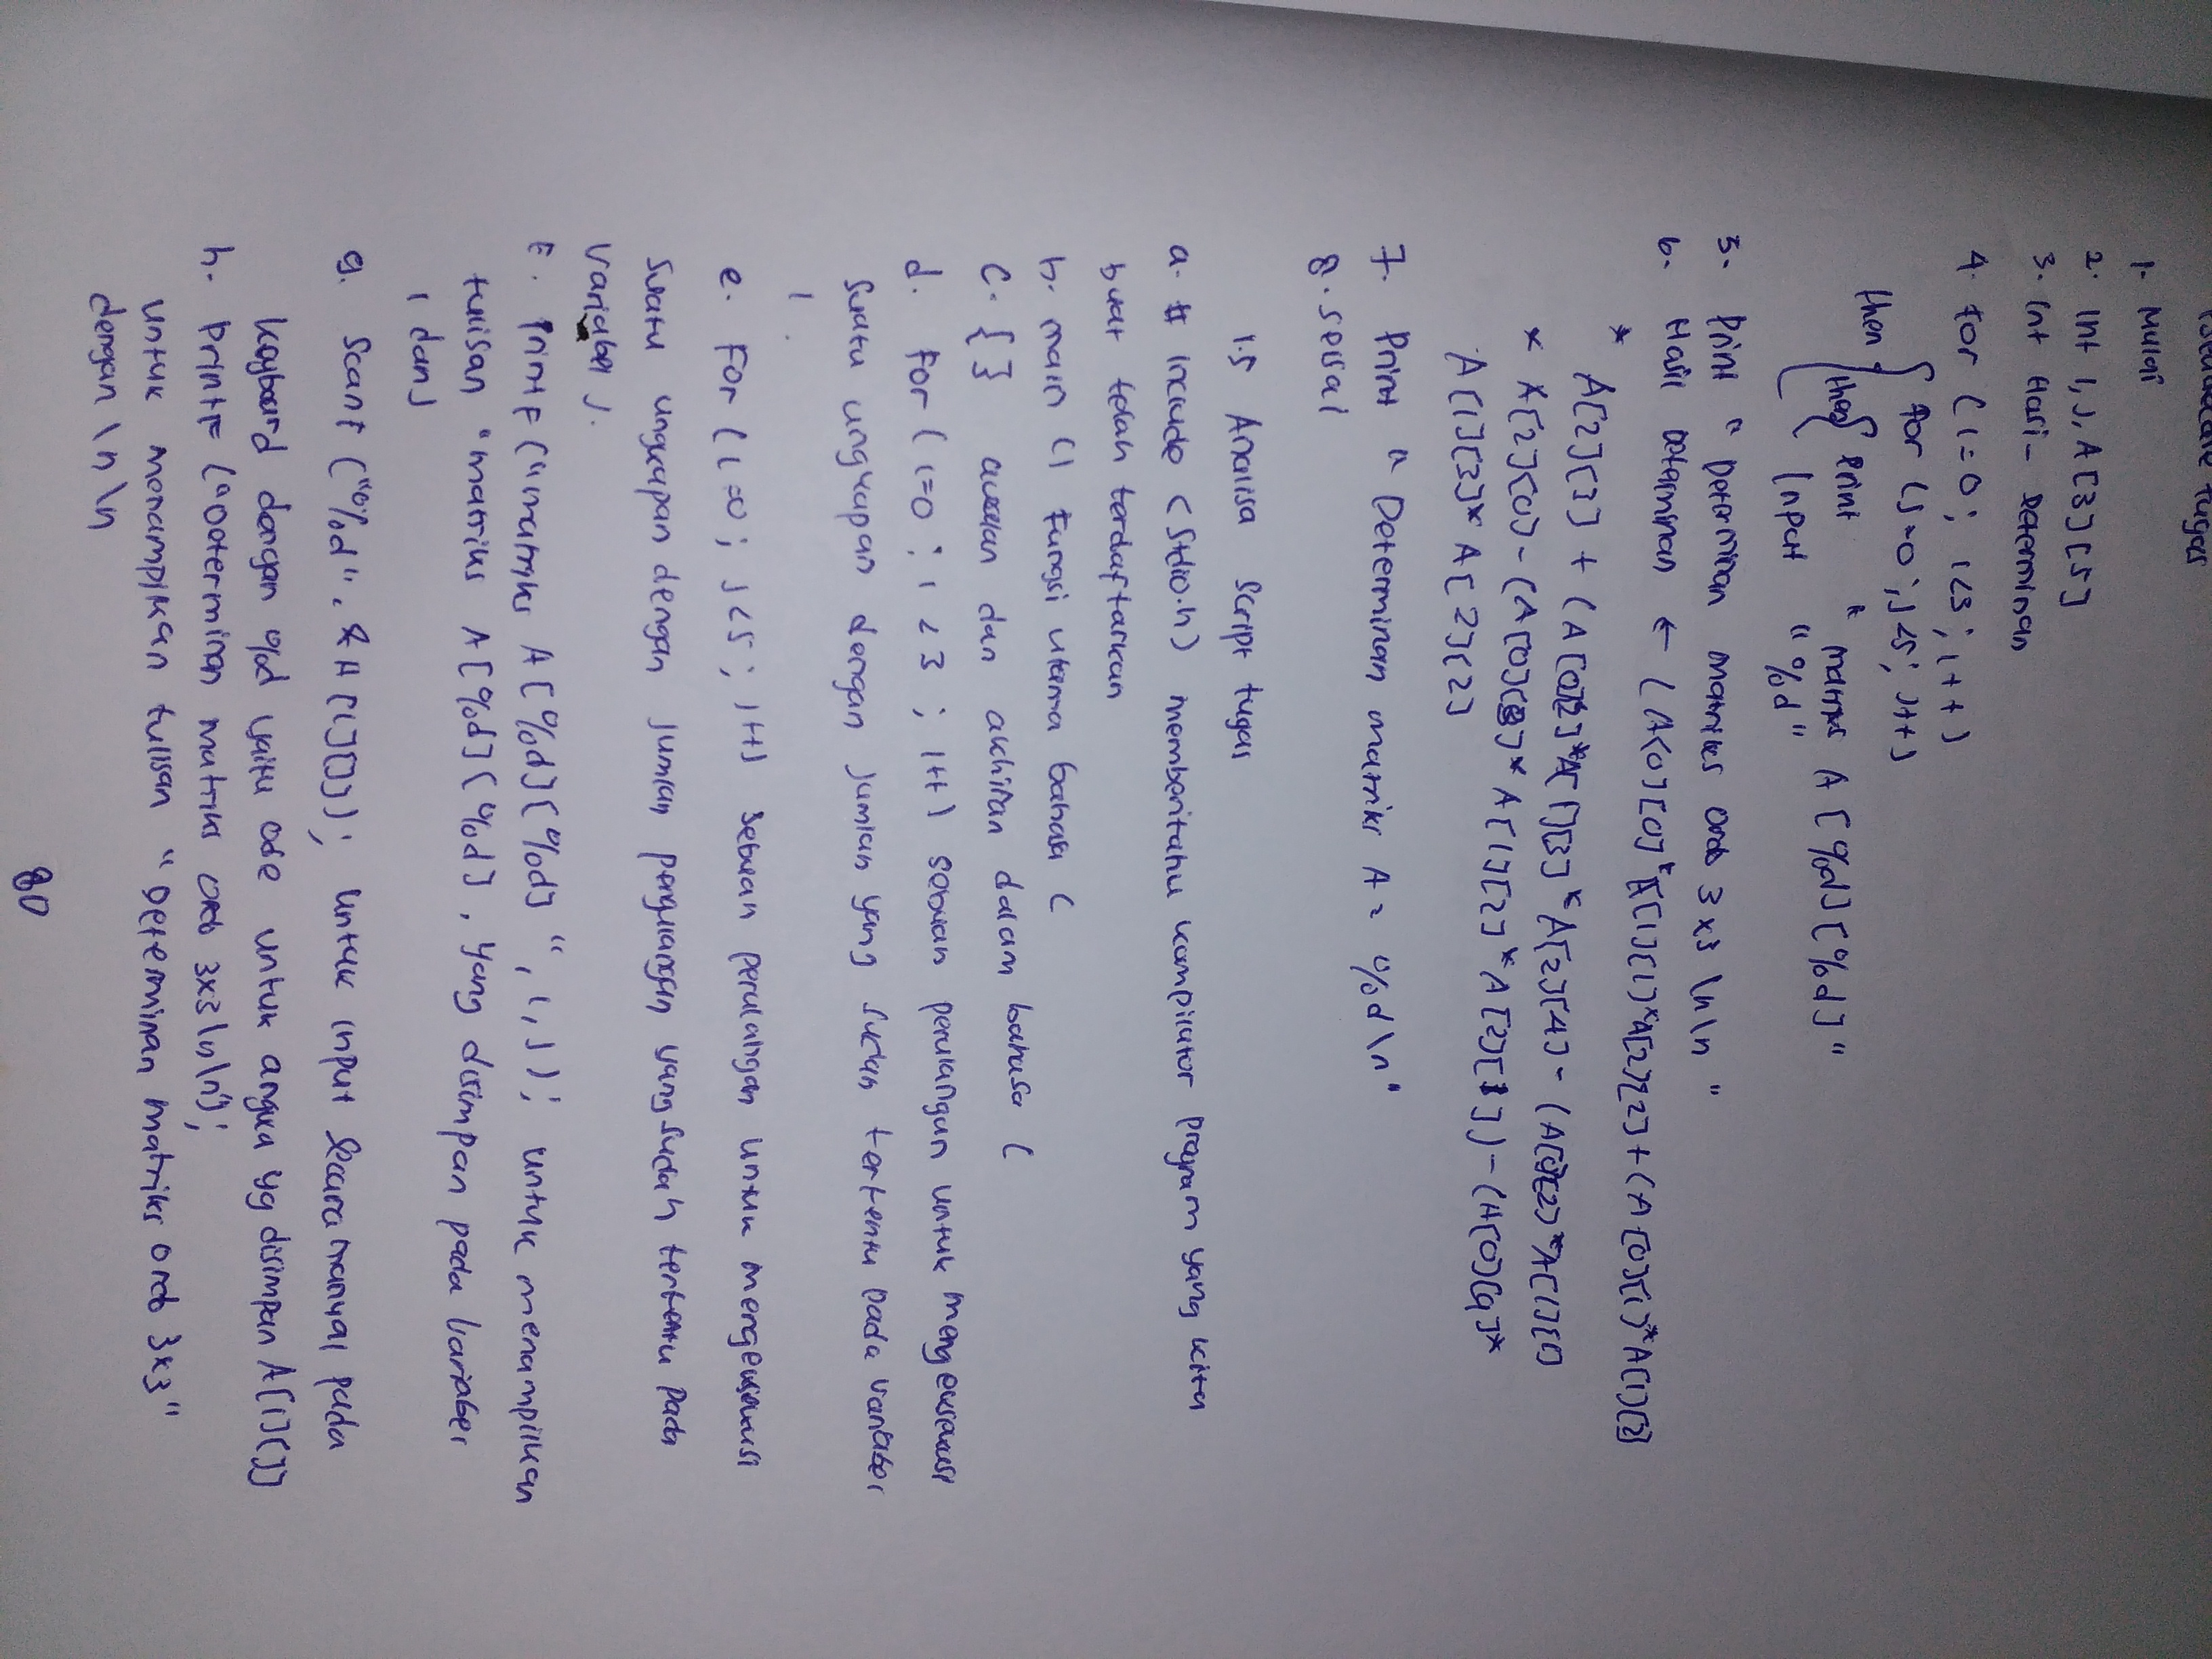 1. Mulai
2. Int i, j, A[3][5]
3. Int Hasi- Determinan
4. for (i=0; i<3; i++)
{ for (j=0; j<5; j++)
then { then { print " matriks A [%d][%d]"
{ Input "%d"
5. print " Determinan matriks ordo 3x3 \n\n "
6. Hasil Determinan ← (A[0][0]*A[1][1]*A[2][2]+(A[0][1]*A[1][2]
* A[2][3] + (A[0][2]*A[1][3]*A[2][4]-(A[0][2]*A[1][1]
* A[2][0]-(A[0][3]*A[1][2]*A[2][1])-(A[0][4]*
A[1][3]*A[2][2]
7. Print " Determinan matriks A = %d\n"
8. selesai
1.5 Analisa Script tugas
a. # include (stdio.h) memberitahu kompilator program yang kita
buat telah terdaftarkan
b. main () fungsi utama bahasa C
c. { } awalan dan akhiran dalam bahasa C
d. For (i=0; i<3; i++) sebuah perulangan untuk mengeksekusi
suatu ungkapan dengan jumlah yang sudah tertentu pada variabel
i.
e. For (i=0; j<5; j++) sebuah perulangan untuk mengeksekusi
suatu ungkapan dengan jumlah pengulangan yang sudah tertentu pada
variabel j.
F. Printf ("matriks A[%d][%d]", i,j); untuk menampilkan
tulisan "matriks A[%d][%d], yang disimpan pada variabel
i dan j
g. Scanf ("%d", & A[i][j]); untuk input secara manual pada
keyboard dengan %d yaitu code untuk angka yg disimpan A[i][j]
h. printf ("Determinan matriks ordo 3x3\n\n");
untuk menampilkan tulisan "Determinan matriks ordo 3x3"
dengan \n\n
80